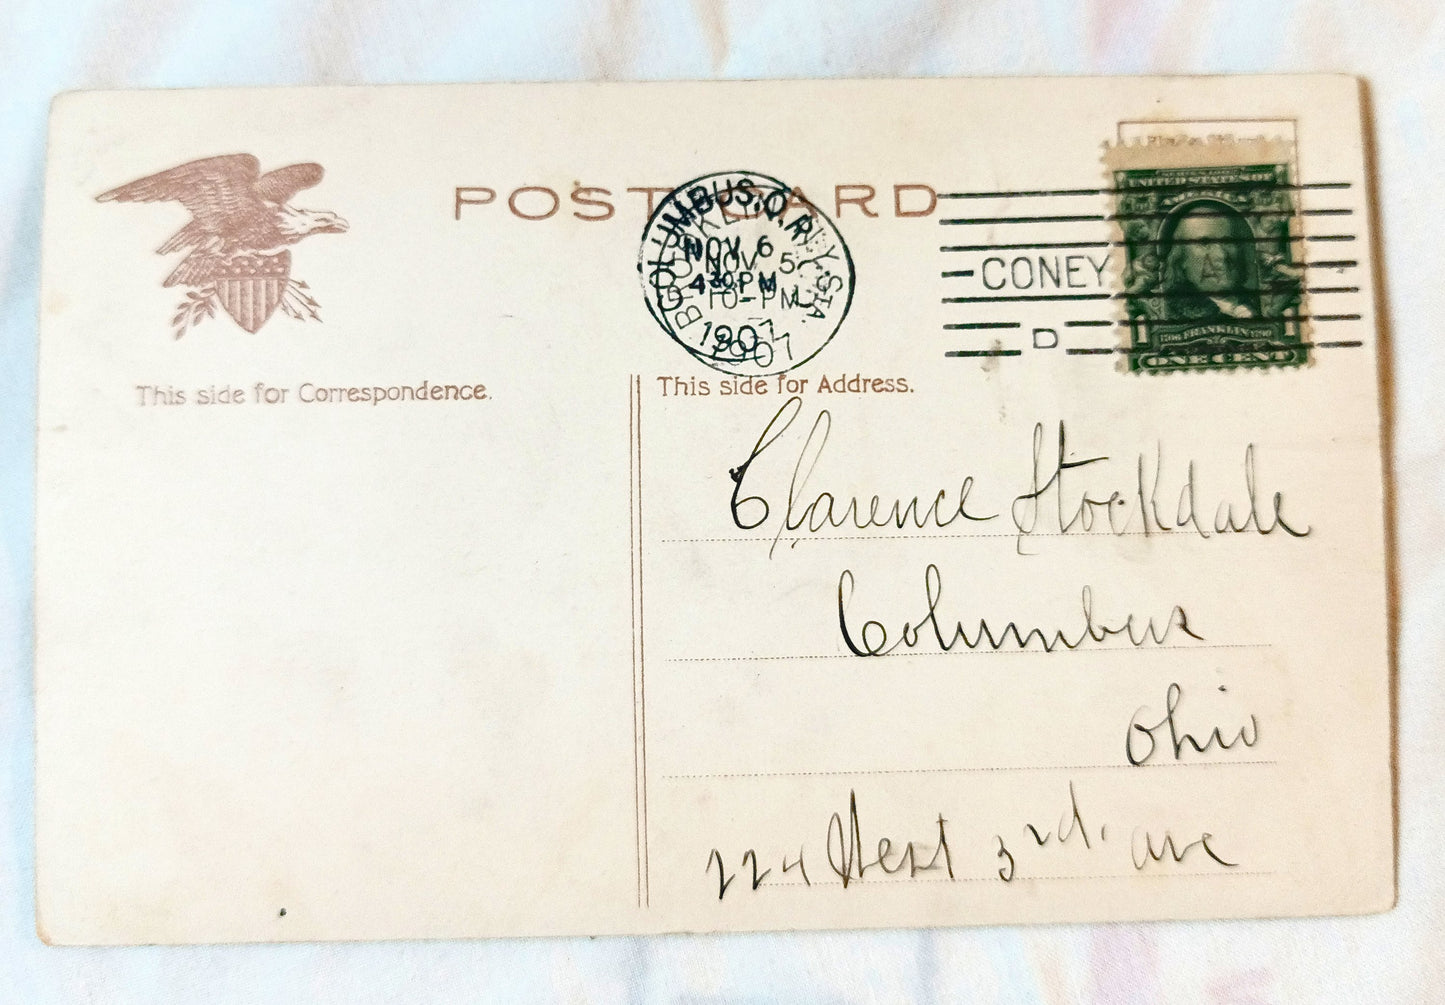 POST CARD
COLUMBUS, O.
NOV 6
430 PM
1907
BROOKLYN, N.Y.
NOV 5
10-PM
1907
STA.
CONEY
D
SERIES 1902
UNITED STATES OF
1706 FRANKLIN 1790
1 1
ONE CENT
This side for Correspondence.
This side for Address.
Clarence Stockdale
Columbus
Ohio
224 West 3rd. ave